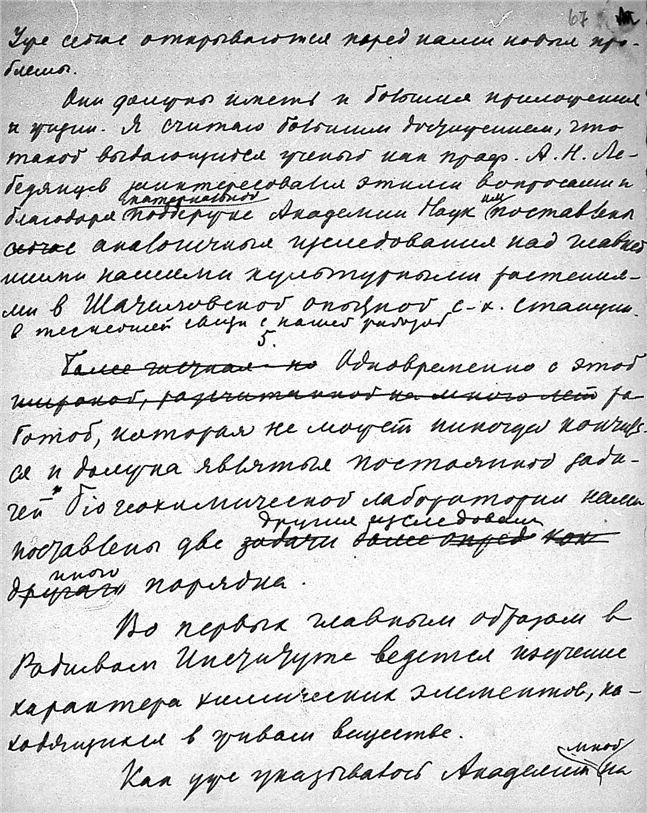 67
Уже сейчас открываются перед нами новые про-
блемы.
Они должны иметь и большия приложения
к жизни. Я считаю большим достижением, что
такой выдающийся ученый как проф. А. Н. Ле-
бедянцев заинтересовался этими вопросами и
материальной
благодаря поддержке Академии Наук им поставлены
сейчас аналогичные исследования над главней
шими нашими культурными растения-
ми в Шатиловской опытной с.-х. станции.
в теснейшей связи с нашей работой
5.
Более  но Одновременно с этой
широкой, разсчитанной на много лет ра-
ботой, которая не может никогда кончить-
ся и должна являться постоянной зада-
чей Биогеохимической лаборатории нами
другия изследования
поставлены две задачи более опред как
иного
другого порядка.
Во первых главным образом в
Радиевом Институте ведется изучение
характера химических элементов, на-
ходящихся в живом веществе.
мной
Как уже указывалось Академии на